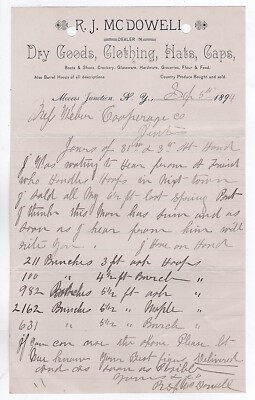 R. J. MCDOWELL
DEALER IN
Dry Goods, Clothing, Hats, Caps,
Boots & Shoes, Crockery, Glassware, Hardware, Groceries, Flour & Feed.
Also Barrel Hoops of all descriptions. Country Produce Bought and sold.
Mooers Junction, N. Y., Sep 6th 1899
Cooperage Co
Yours of 31st & 3rd At Hand
I Was Waiting to Hear from A Friend
who Handles Hoops in Next town
I Sold all My 6½ ft last Spring But
I think this Man has Sum and as
soon as I hear from him will
rite You I Have on Hand
211 Bunches 3 ft ash Hoops
100 " 4½ ft Burch "
982 Bunches 5½ ft ash "
2162 Bunches 5½ " Maple "
631 " 5½ " Burch "
If You can use the above Please let
me know Your Best figure Delivered
and as soon as
Yours
R J McDowell